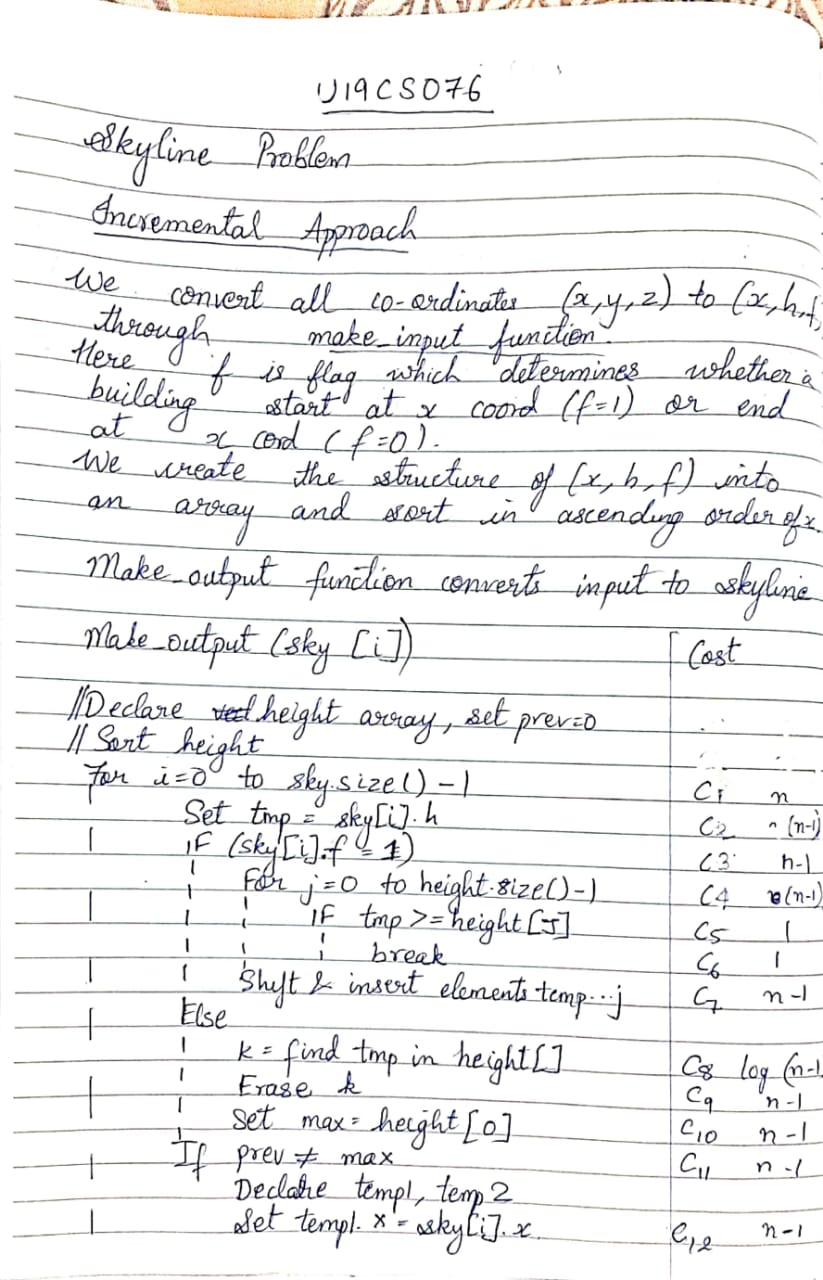 U19CS076
Skyline Problem
Incremental Approach
We convert all co-ordinates (x,y,z) to (x,h,f
through make_input function.
Here f is flag which determines whether a
building start at x coord (f=1) or end
at x cord (f=0).
We create the structure of (x,h,f) into
an array and sort in ascending order of x.
Make_output function converts input to skyline
Make_output (sky [i]) Cost
//Declare height array, set prev=0
// Sort height
For i=0 to sky.size()-1 C1 n
Set tmp = sky[i].h C2 (n-1)
IF (sky[i].f = 1) C3 n-1
For j=0 to height.size()-1 C4 (n-1)
IF tmp >= height[J] C5 1
break C6 1
Shyt & insert elements temp...j C7 n-1
Else
k = find tmp in height[] C8 log (n-1
Erase k C9 n-1
Set max = height[0] C10 n-1
If prev ≠ max C11 n-1
Declare temp1, temp2
Set temp1.x = sky[i].x C12 n-1